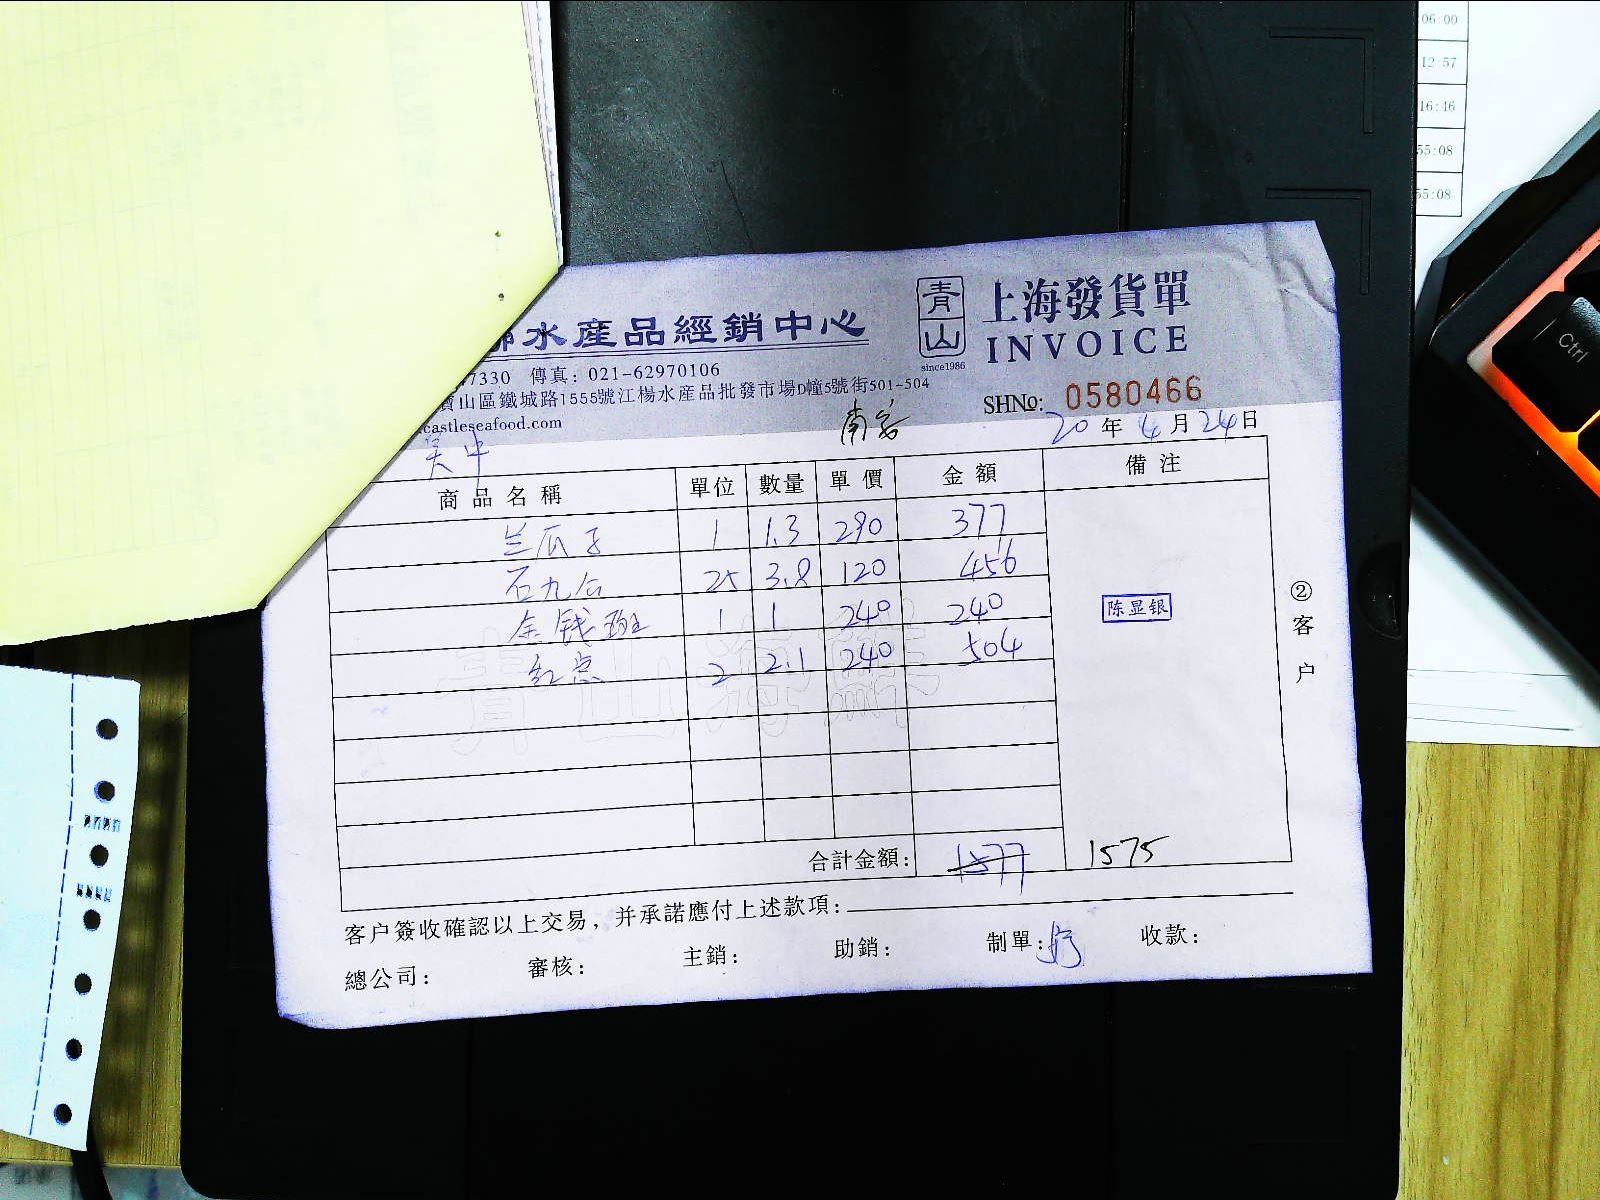 水產品經銷中心
青山
since1986
上海發貨單
INVOICE
7330 傳真: 021-62970106
寶山區鐵城路1555號江楊水產品批發市場D幢5號街501-504
castleseafood.com
SHNo: 0580466
吴中
20 年 4 月 24 日
商品名稱 單位 數量 單價 金額 備注
兰瓜子 1 1.3 290 377
石九公 25 3.8 120 456
金钱斑 1 1 240 240
红点 2 2.1 240 504
陈显银
青山海鮮
②客户
合計金額: 1577 1575
客户簽收確認以上交易，并承諾應付上述款項:
總公司: 審核: 主銷: 助銷: 制單: 收款:
06:00
12:57
16:46
55:08
55:08
Ctrl